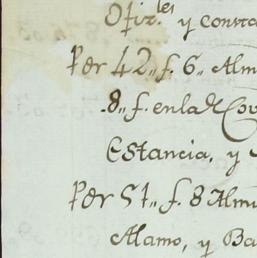 Ofiz.les y contra
Per 42,, f. 6,, Alm
8,, f. en la de Cov
Estancia, y
Per 51,, f. 8 Almu
Alamo, y Ba